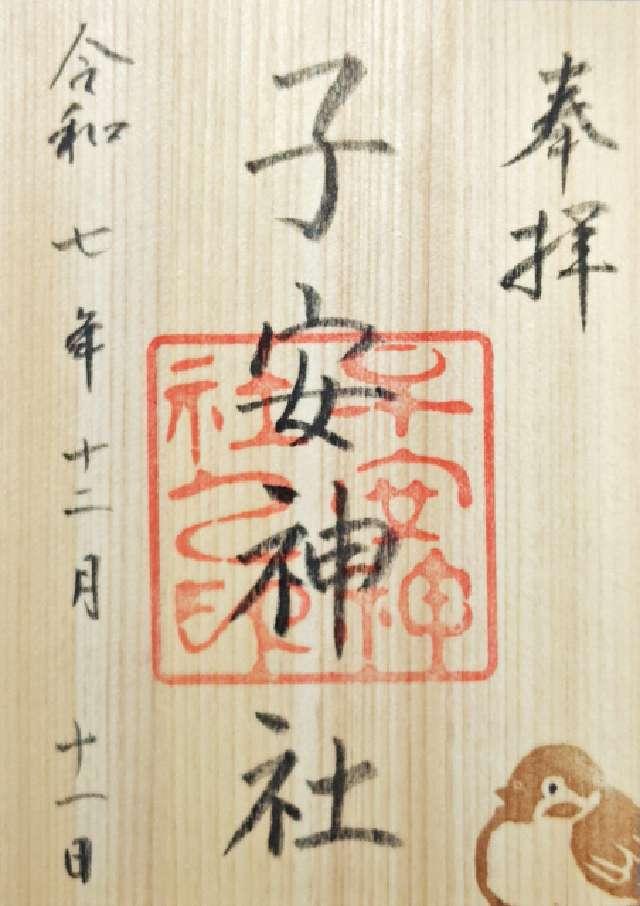 奉拝
子安神社
子安神
社之印
令和七年十二月十一日